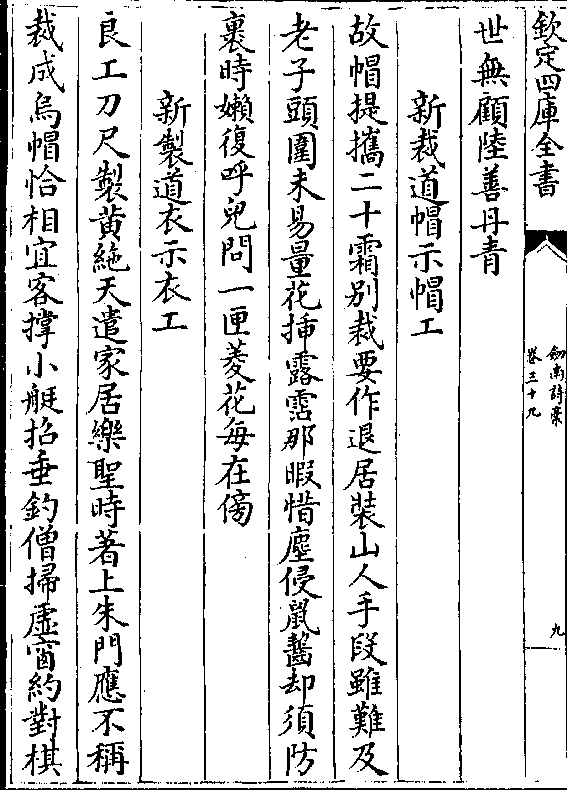 欽定四庫全書
劍南詩藁
卷三十九
九
世無顧陸善丹青
新裁道帽示帽工
故帽提攜二十霜别裁要作退居装山人手段雖難及
老子頭圍未易量花揷露霑那暇惜塵侵鼠齧却須防
裹時嬾復呼兒問一匣菱花每在傍
新製道衣示衣工
良工刀尺製黄絁天遣家居樂聖時著上朱門應不稱
裁成烏帽恰相宜客撑小艇招垂釣僧掃虛窗約對棋